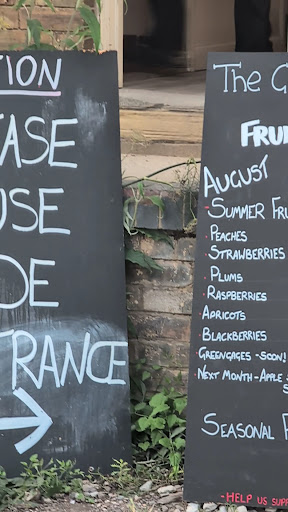 TION
ASE
USE
DE
TRANCE
The G
FRU
AUGUST
SUMMER FRU
PEACHES
STRAWBERRIES
PLUMS
RASPBERRIES
APRICOTS
BLACKBERRIES
GREENGAGES - SOON!
NEXT MONTH - APPLE
S
SEASONAL
- HELP US SUPP